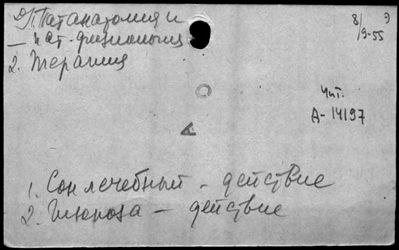 1. Патанатомия и
— пат. физиология
2. Терапия
8/9-55
9
Чит.
А-14197
1. Сон лечебный - действие
2. Глюкоза — действие